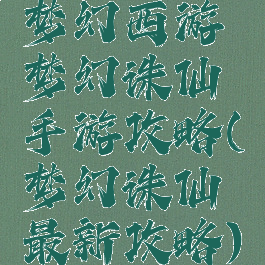 梦幻西游
梦幻诛仙
手游攻略(
梦幻诛仙
最新攻略)